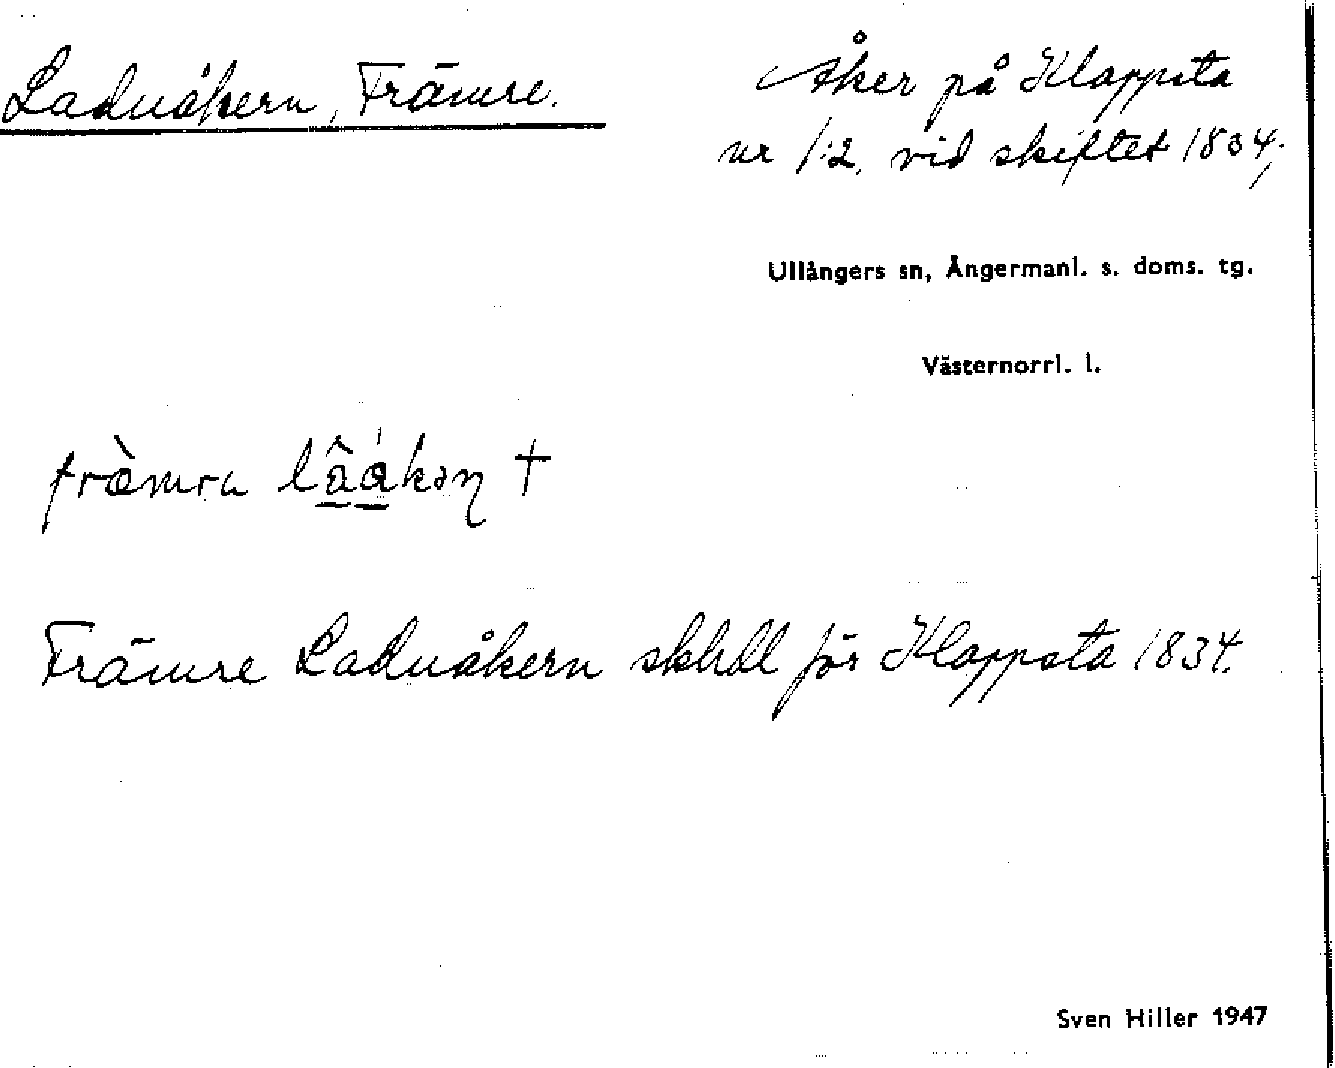 Laduåkern, Främre.
Åker på Klappsta
nr 1:2, vid skiftet 1834;
Ullångers sn, Ångermanl. s. doms. tg.
Västernorrl. l.
Främre Laduåkern sklhdl för Klappsta 1834.
Sven Hiller 1947